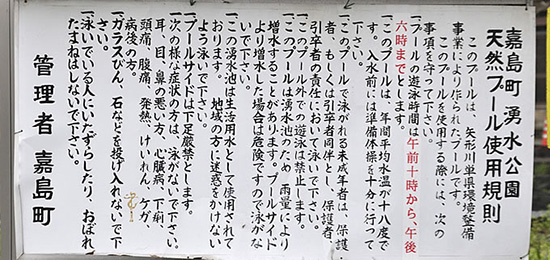 嘉島町 湧水公園
天然プール使用規則
このプールは、矢形川単県環境整備
事業により作られたプールです。
このプールを使用する際には、次の
事項を守って下さい。
一、プールの遊泳時間は午前十時から、午後
六時までとします。
一、このプールは、年間平均水温が十八度で
す。入水前には準備体操を十分に行って
下さい。
一、このプールで泳がれる未成年者は、保護
者、もしくは引卒者同伴とし、保護者、
引卒者の責任において泳いで下さい。
一、このプール外での遊泳は禁止します。
一、このプールは湧水池のため、雨量により
増水することがあります。プールサイド
より増水した場合は危険ですので泳がな
いで下さい。
一、この湧水池は生活用水として使用されて
おります。地域の方に迷惑をかけない
よう泳いで下さい。
一、プールサイドは下足厳禁とします。
一、次の様な症状の方は、泳がないで下さい。
耳、目、鼻の悪い方、心臓病、下痢、
頭痛、腹痛、発熱、けいれん、ケガ、
病後の方。
一、ガラスびん、石などを投げ入れないで下
さい。
一、泳いでいる人にいたずらしたり、おぼれ
たまねはしないで下さい。
管理者 嘉島町